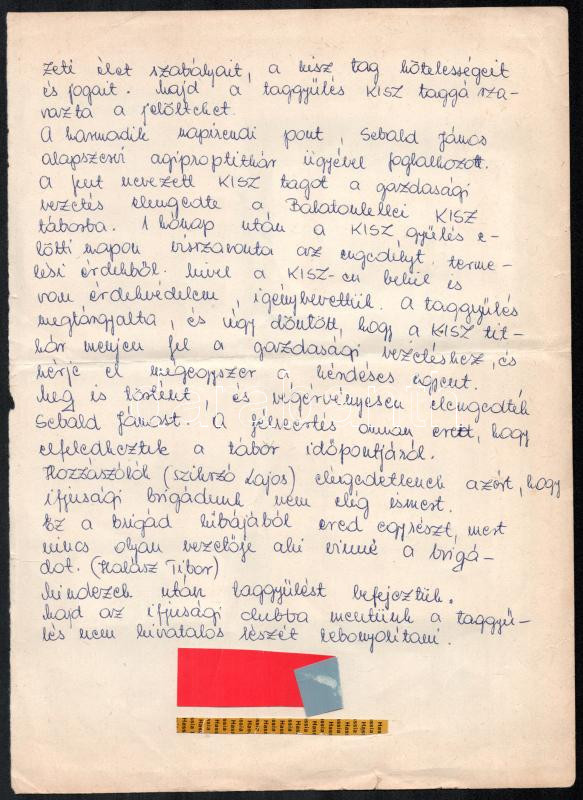 zeti élet szabályait, a kisz tag kötelességeit
és jogait. Majd a taggyűlés KISZ taggá sza-
vazta a jelölteket.
A harmadik napirendi pont, Sebald János
alapszervi agiproptitkár ügyével foglalkozott.
A fent nevezett KISZ tagot a gazdasági
vezetés elengedte a Balatonlellei KISZ
táborba. 1 hónap után a KISZ gyűlés e-
lőtti napon visszavonta az engedélyt terme-
lési érdekből. Mivel a KISZ-en belül is
van érdekvédelem, igénybevettük. A taggyűlés
megtárgyalta, és úgy döntött, hogy a KISZ tit-
kár menjen fel a gazdasági vezetéshez, és
kérje el mégegyszer a kérdéses egyént.
Meg is történt, és végérvényesen elengedték
Sebald Jánost. A félreértés onnan eredt, hogy
elfeledkeztek a tábor időpontjáról.
Hozzászólók (Szikszó Lajos) elégedetlenek azért, hogy
ifjusági brigádunk nem elég ismert.
Ez a brigád hibájából ered egyrészt, mert
nincs olyan vezetője aki vinné a brigá-
dot. (Halász Tibor)
Mindezek után taggyűlést befejeztük.
Majd az ifjusági clubba mentünk a taggyű-
lés nem hivatalos részét lebonyolítani.